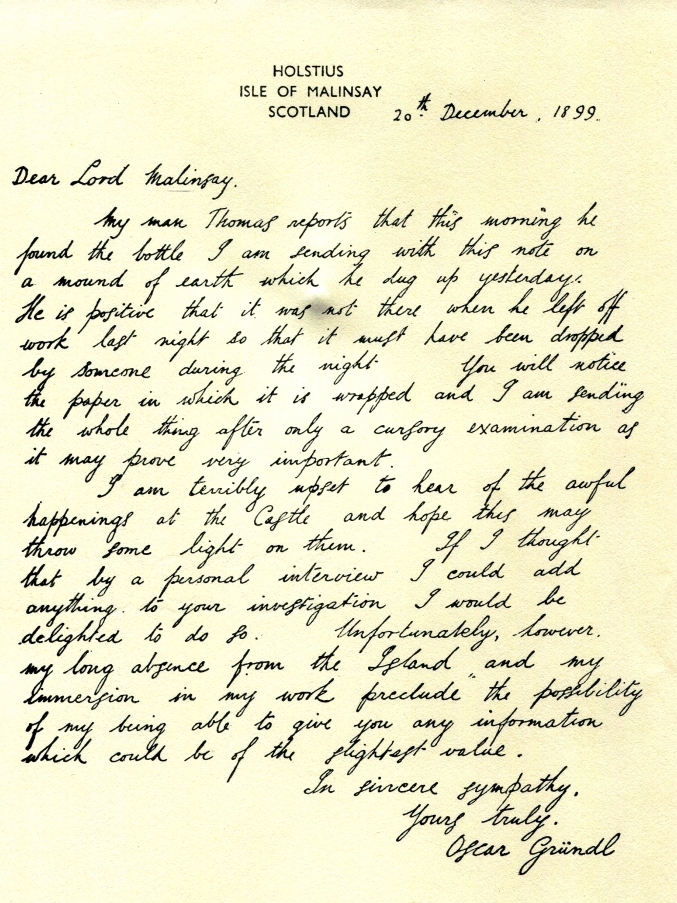 HOLSTIUS
ISLE OF MALINSAY
SCOTLAND
20th December, 1899.
Dear Lord Malinsay.
My man Thomas reports that this morning he
found the bottle I am sending with this note on
a mound of earth which he dug up yesterday.
He is positive that it was not there when he left off
work last night so that it must have been dropped
by someone during the night. You will notice
the paper in which it is wrapped and I am sending
the whole thing after only a cursory examination as
it may prove very important.
I am terribly upset to hear of the awful
happenings at the Castle and hope this may
throw some light on them. If I thought
that by a personal interview I could add
anything to your investigation I would be
delighted to do so. Unfortunately, however,
my long absence from the Island and my
immersion in my work preclude the possibility
of my being able to give you any information
which could be of the slightest value.
In sincere sympathy.
Yours truly.
Oscar Gründl